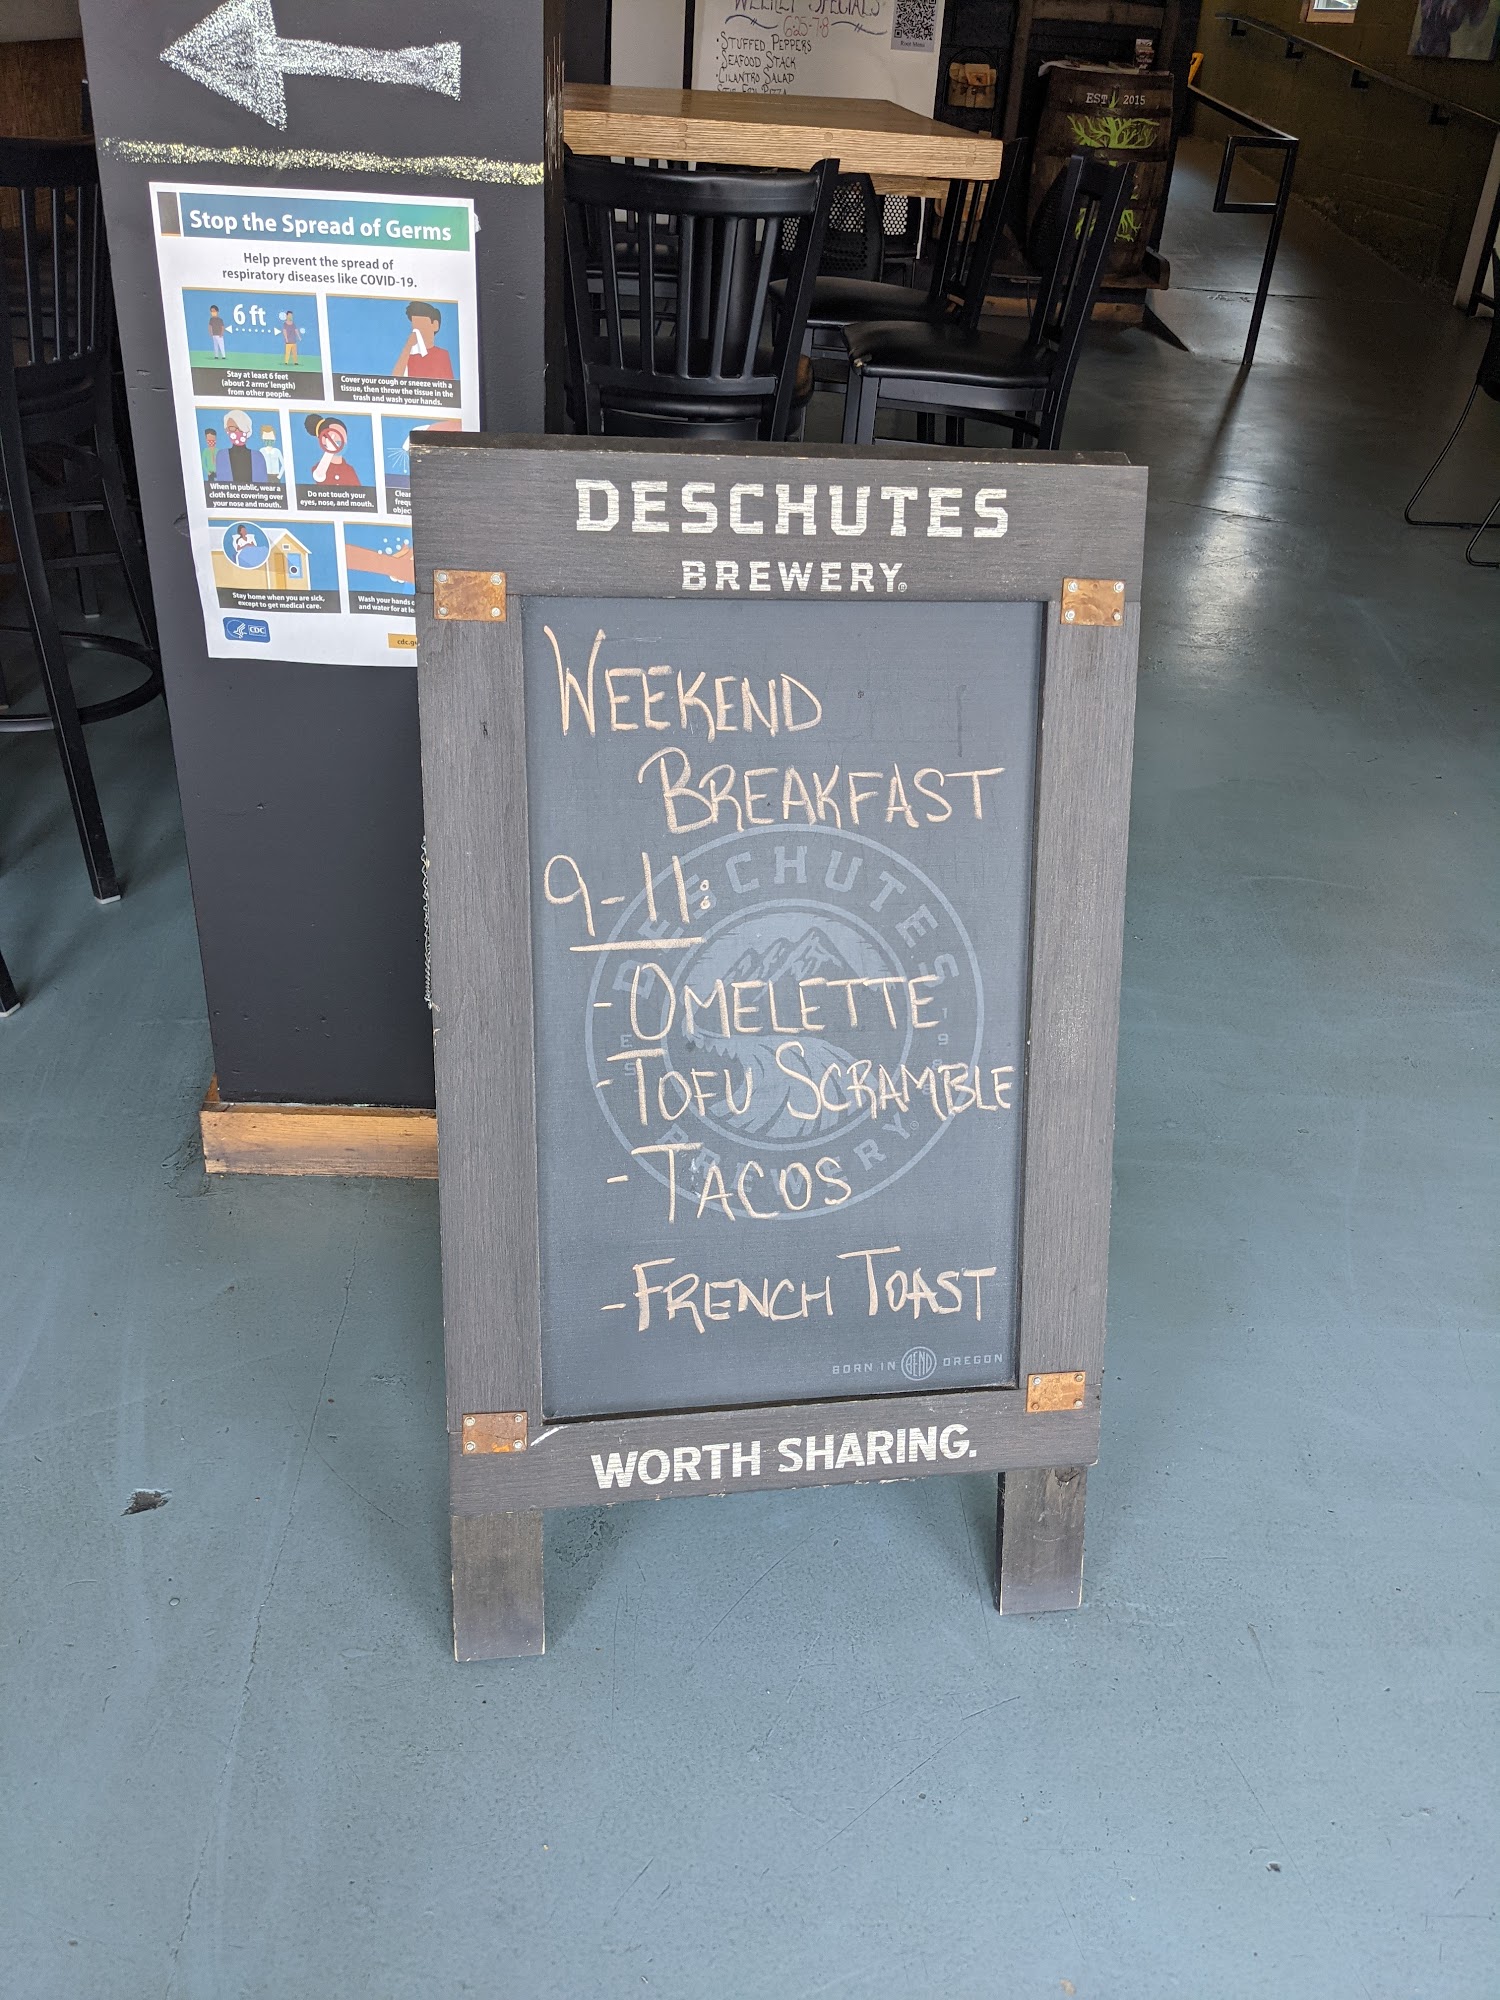 WEEKLY SPECIALS
6/25-7/8
• STUFFED PEPPERS
• SEAFOOD STACK
• CILANTRO SALAD
EST 2015
Stop the Spread of Germs
Help prevent the spread of
respiratory diseases like COVID-19.
6 ft
Stay at least 6 feet
(about 2 arms' length)
from other people.
Cover your cough or sneeze with a
tissue, then throw the tissue in the
trash and wash your hands.
When in public, wear a
cloth face covering over
your nose and mouth.
Do not touch your
eyes, nose, and mouth.
Stay home when you are sick,
except to get medical care.
Wash your hands
and water for at
CDC
DESCHUTES
BREWERY®
WEEKEND
BREAKFAST
9-11:
- OMELETTE
- TOFU SCRAMBLE
- TACOS
- FRENCH TOAST
DESCHUTES
BREWERY®
BORN IN BEND OREGON
WORTH SHARING.